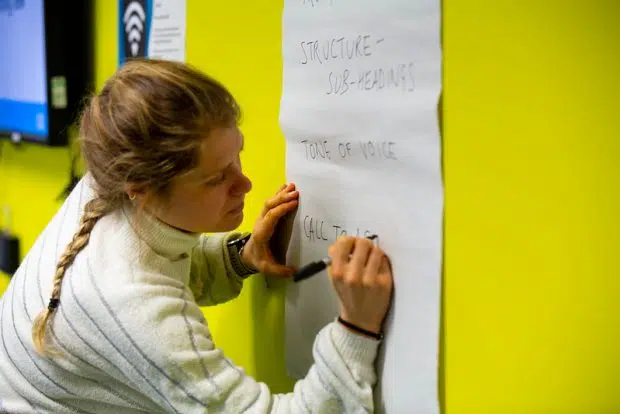 STRUCTURE -
SUB-HEADINGS
TONE OF VOICE
CALL TO